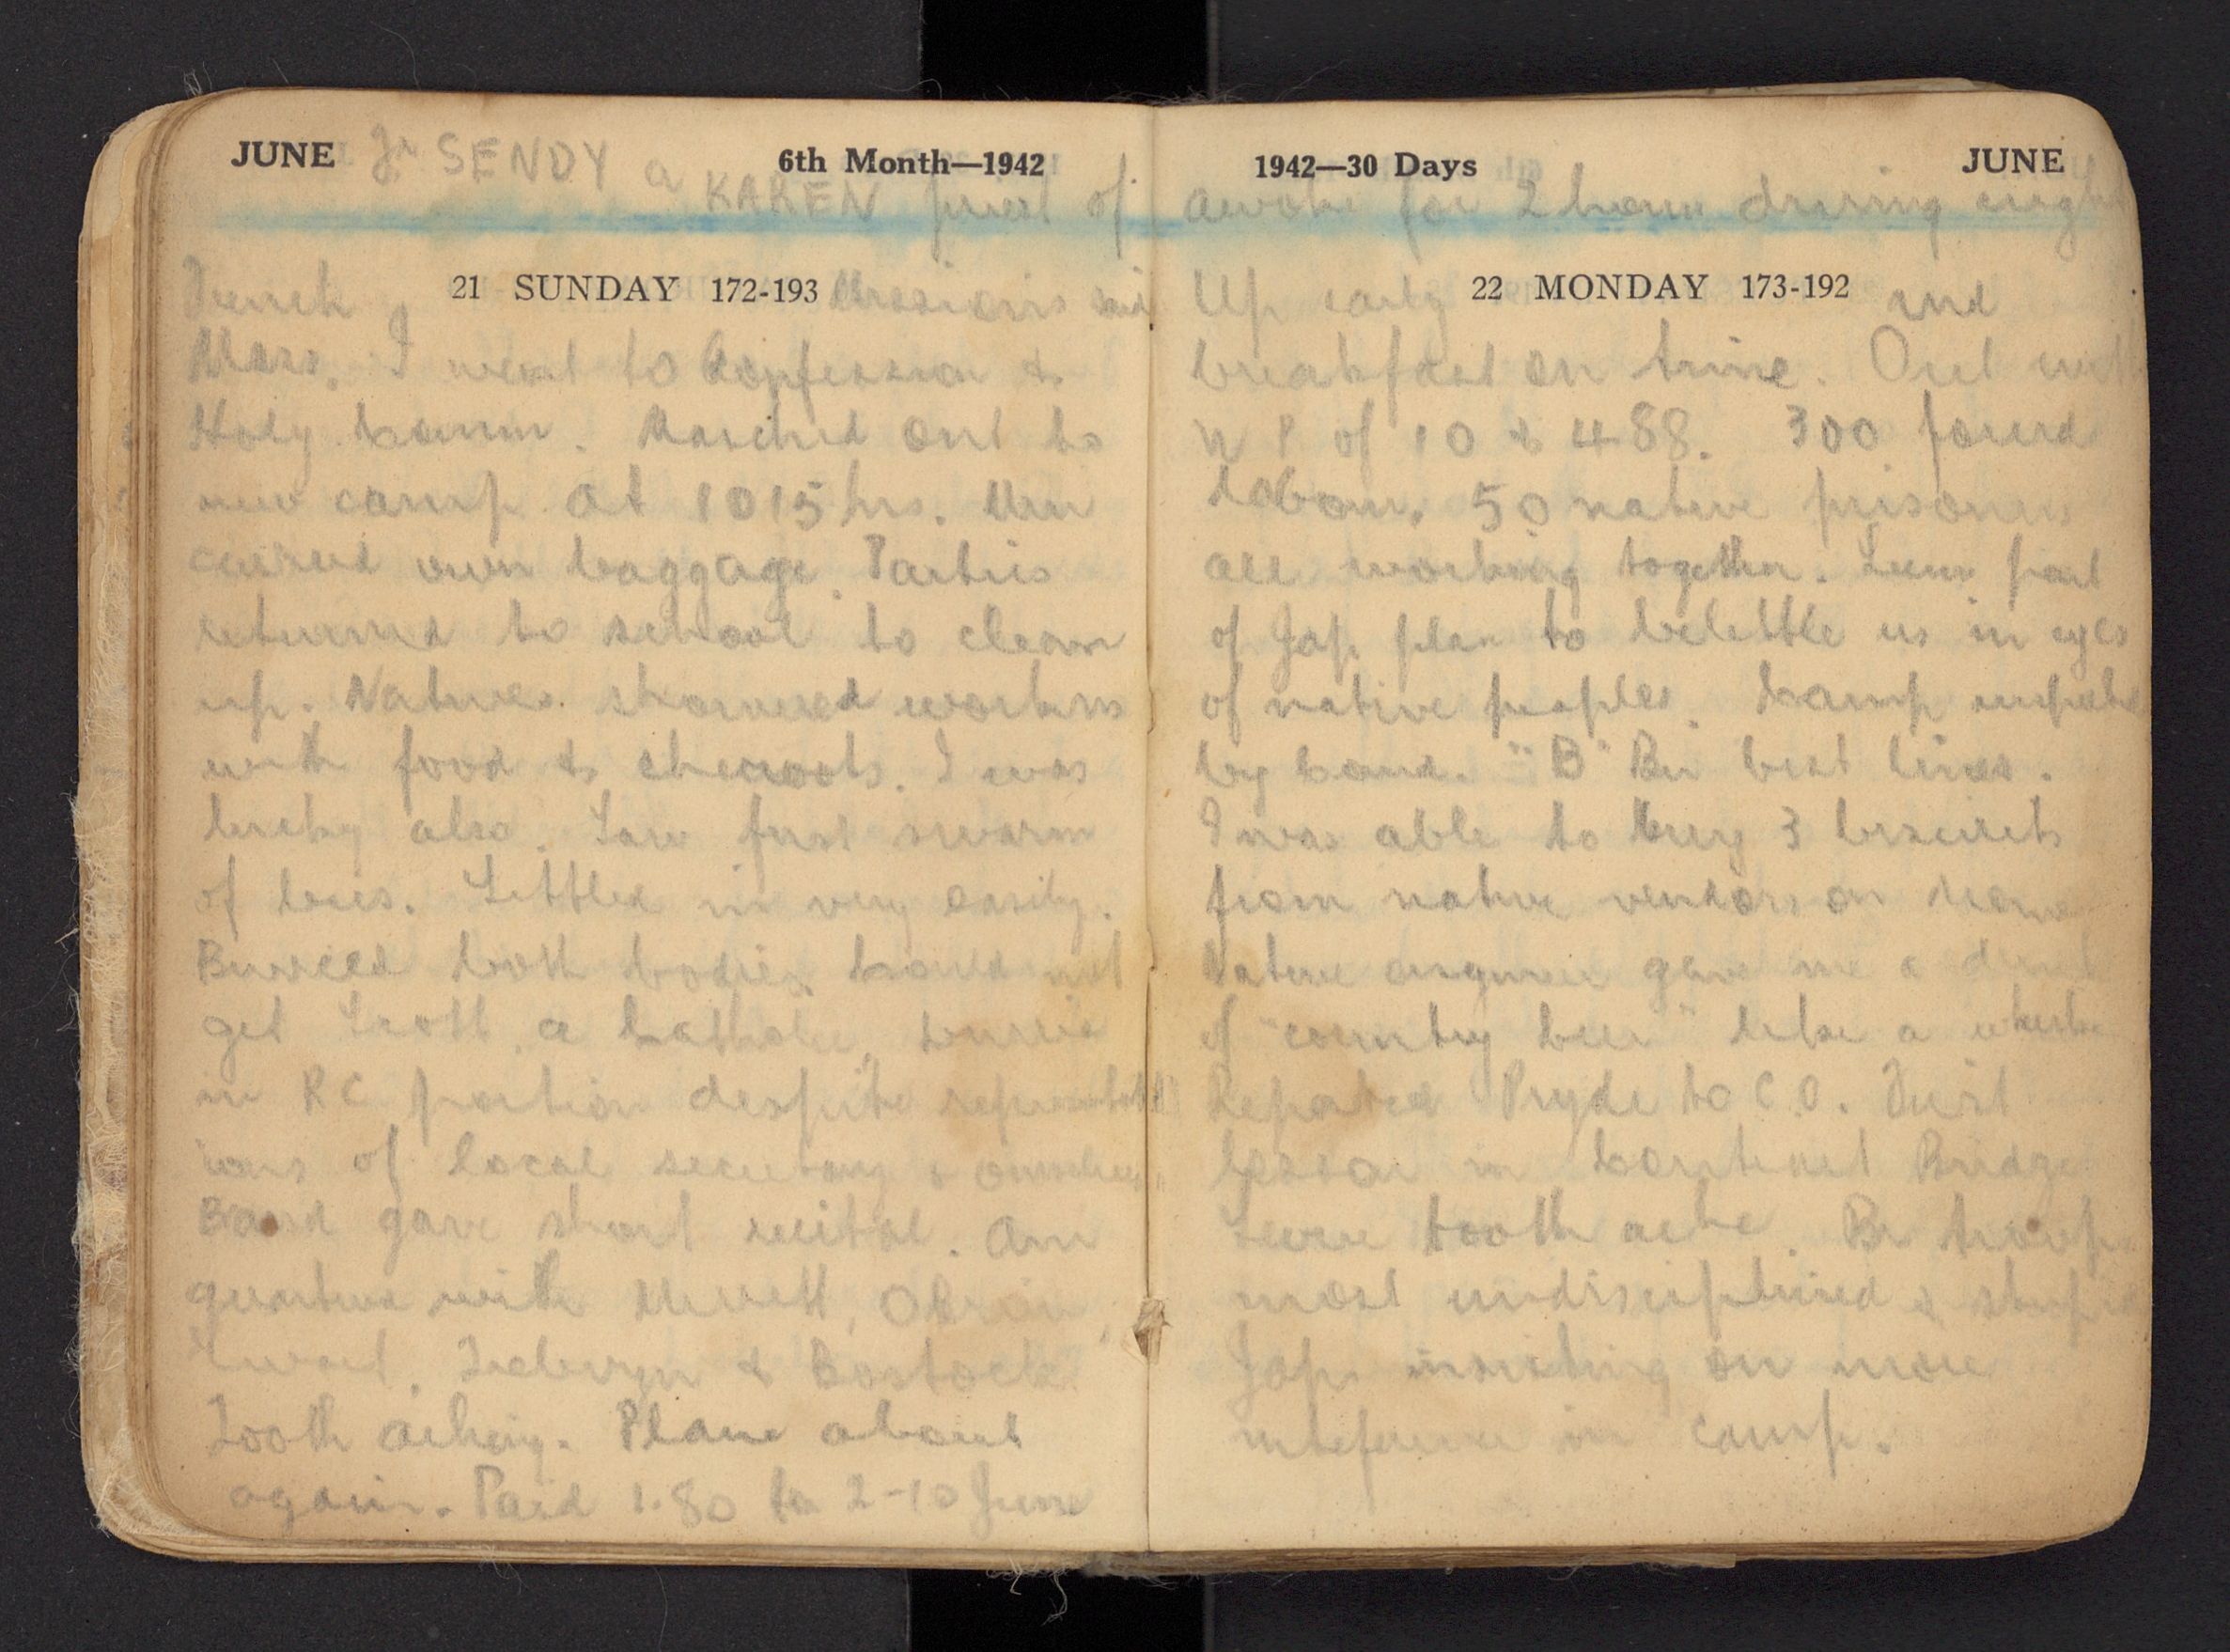 JUNE Fr SENDY a 6th Month—1942
KAREN priest of
21 SUNDAY 172-193
French Missions said
Mass. I went to Confession &
Holy Comm. Marched out to
new camp at 1015 hrs. Men
carried own baggage. Parties
returned to school to clean
up. Natives showered workers
with food & cheroots. I was
lucky also. Saw first swarm
of bees. Settled in very easily.
Burried both bodies. Could not
get Scott, a Catholic, burried
in RC portion despite representat
ions of local secretary & ourselves
Band gave short recital. Am
quartered with Mereth, OBrien,
& Bostock
Tooth aching. Plane about
again. Paid 1.80 to 2-10 June
1942—30 Days JUNE
awoke for 2 hours during night
22 MONDAY 173-192
Up early and
breakfast on time. Out with
W P of 10 & 488. 300 forced
labour, 50 native prisoners
all working together. Seems part
of Jap plan to belittle us in eyes
of native peoples. Camp inspected
by Comd. "B" Bn best lines.
I was able to buy 3 biscuits
from native vendors on
Native engineer gave me a drink
of "country beer" like a
Reported Pryde to C.O. First
lesson in Contract Bridge
Severe tooth ache. Bn troops
most undisciplined & stupid
Japs insisting on more
inteference in camp.